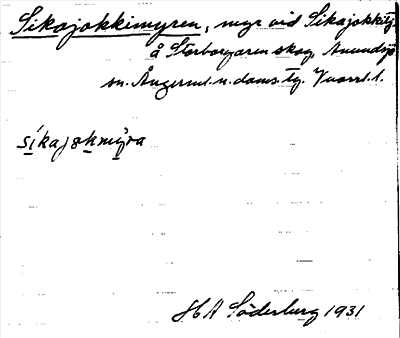 Sikajokkimyren, myr vid Sikajokktj.
å Storborgaren skog, Anundsjö
sn. Ångerml. n. doms. tg.
síkajokmỳra
H A Söderburg 1931